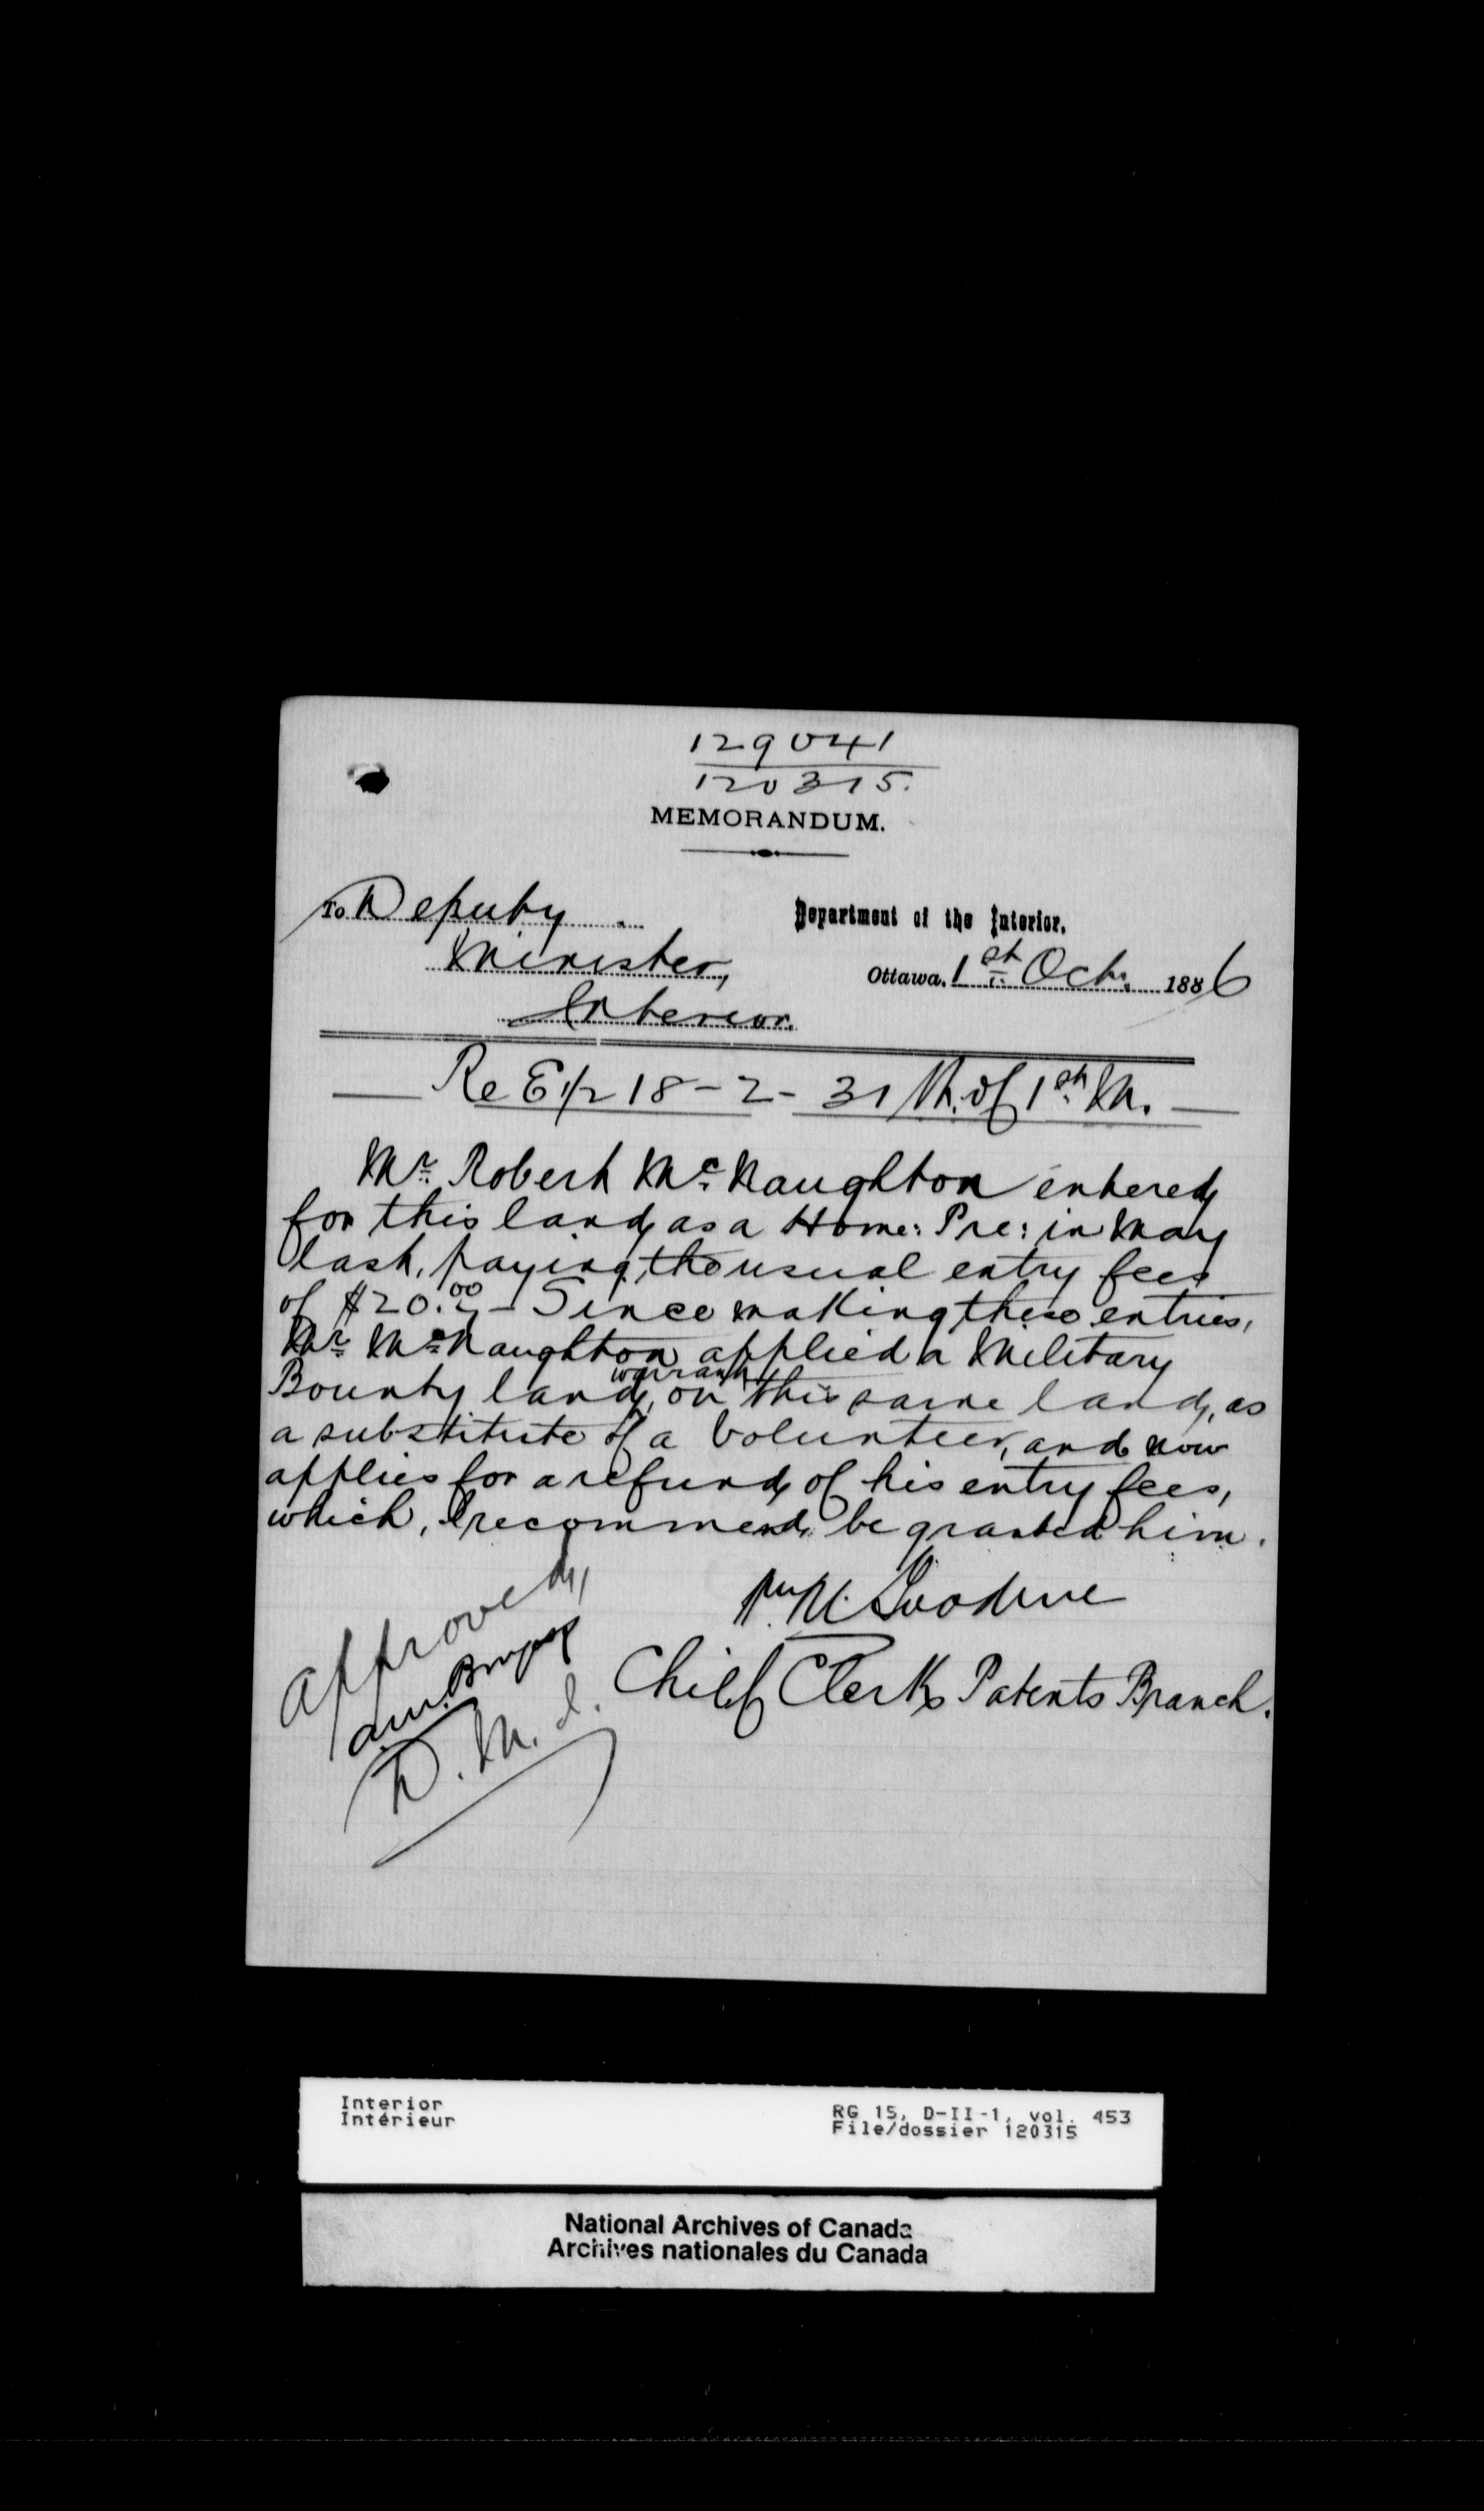 129041
120315.
MEMORANDUM.
To Deputy
Minister,
Interior.
Department of the Interior,
Ottawa, 1st Oct. 1886
Re E 1/2 18 - 2 - 31 W. of 1st M.
Mr. Robert McNaughton entered
for this land as a Home: Pre: in May
last, paying the usual entry fees
of $20.00 - Since making these entries,
Mr. McNaughton applied a Military
Bounty land warrant, on this same land, as
a substitute of a Volunteer, and now
applies for a refund of his entry fees,
which, I recommend be granted him.
Wm M. Goodeve
Chief Clerk Patents Branch.
Approved,
A.M. Burgess
D. M. I.
Interior
Intérieur
RG 15, D-II-1, vol. 453
File/dossier 120315
National Archives of Canada
Archives nationales du Canada